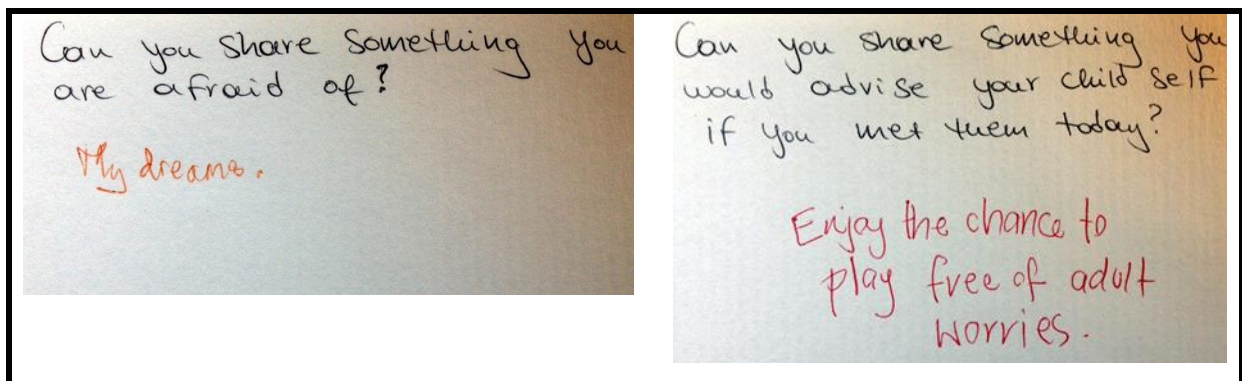 Can you share something you
are afraid of?
My dreams.
Can you share something you
would advise your child self
if you met them today?
Enjoy the chance to
play free of adult
worries.